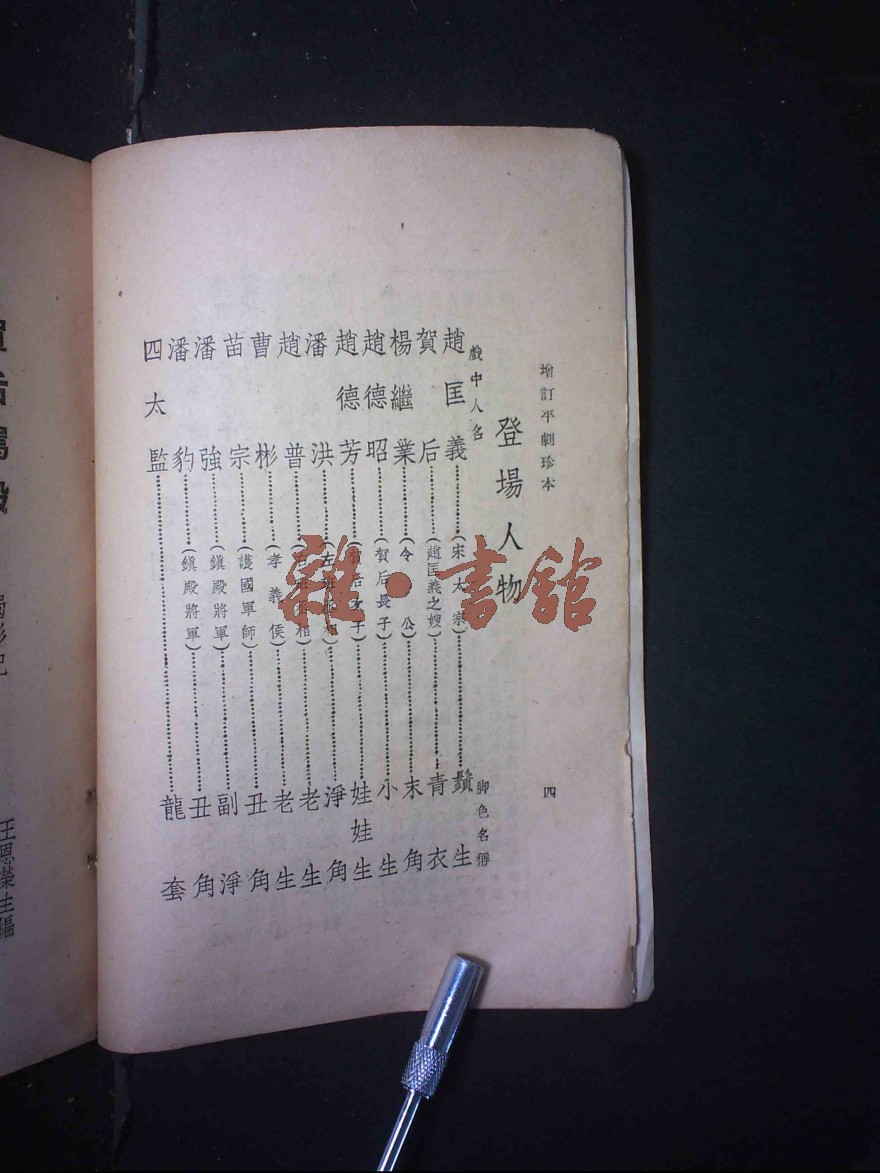 增訂平劇珍本
四
登場人物
戲中人名 脚色名稱
趙匡義(宋太宗)鬚生
賀后(趙匡義之嫂)青衣
楊繼業(令公)末角
趙德昭(賀后長子)小生
趙德芳(賀后次子)娃娃生
潘洪(左班丞相)淨角
趙普(右班丞相)老生
曹彬(孝義侯)老生
苗宗(護國軍師)丑角
潘強(鎭殿將軍)副淨
潘豹(鎭殿將軍)丑角
四太監 龍套
雜·書館
賀后駡殿
王恩榮生編